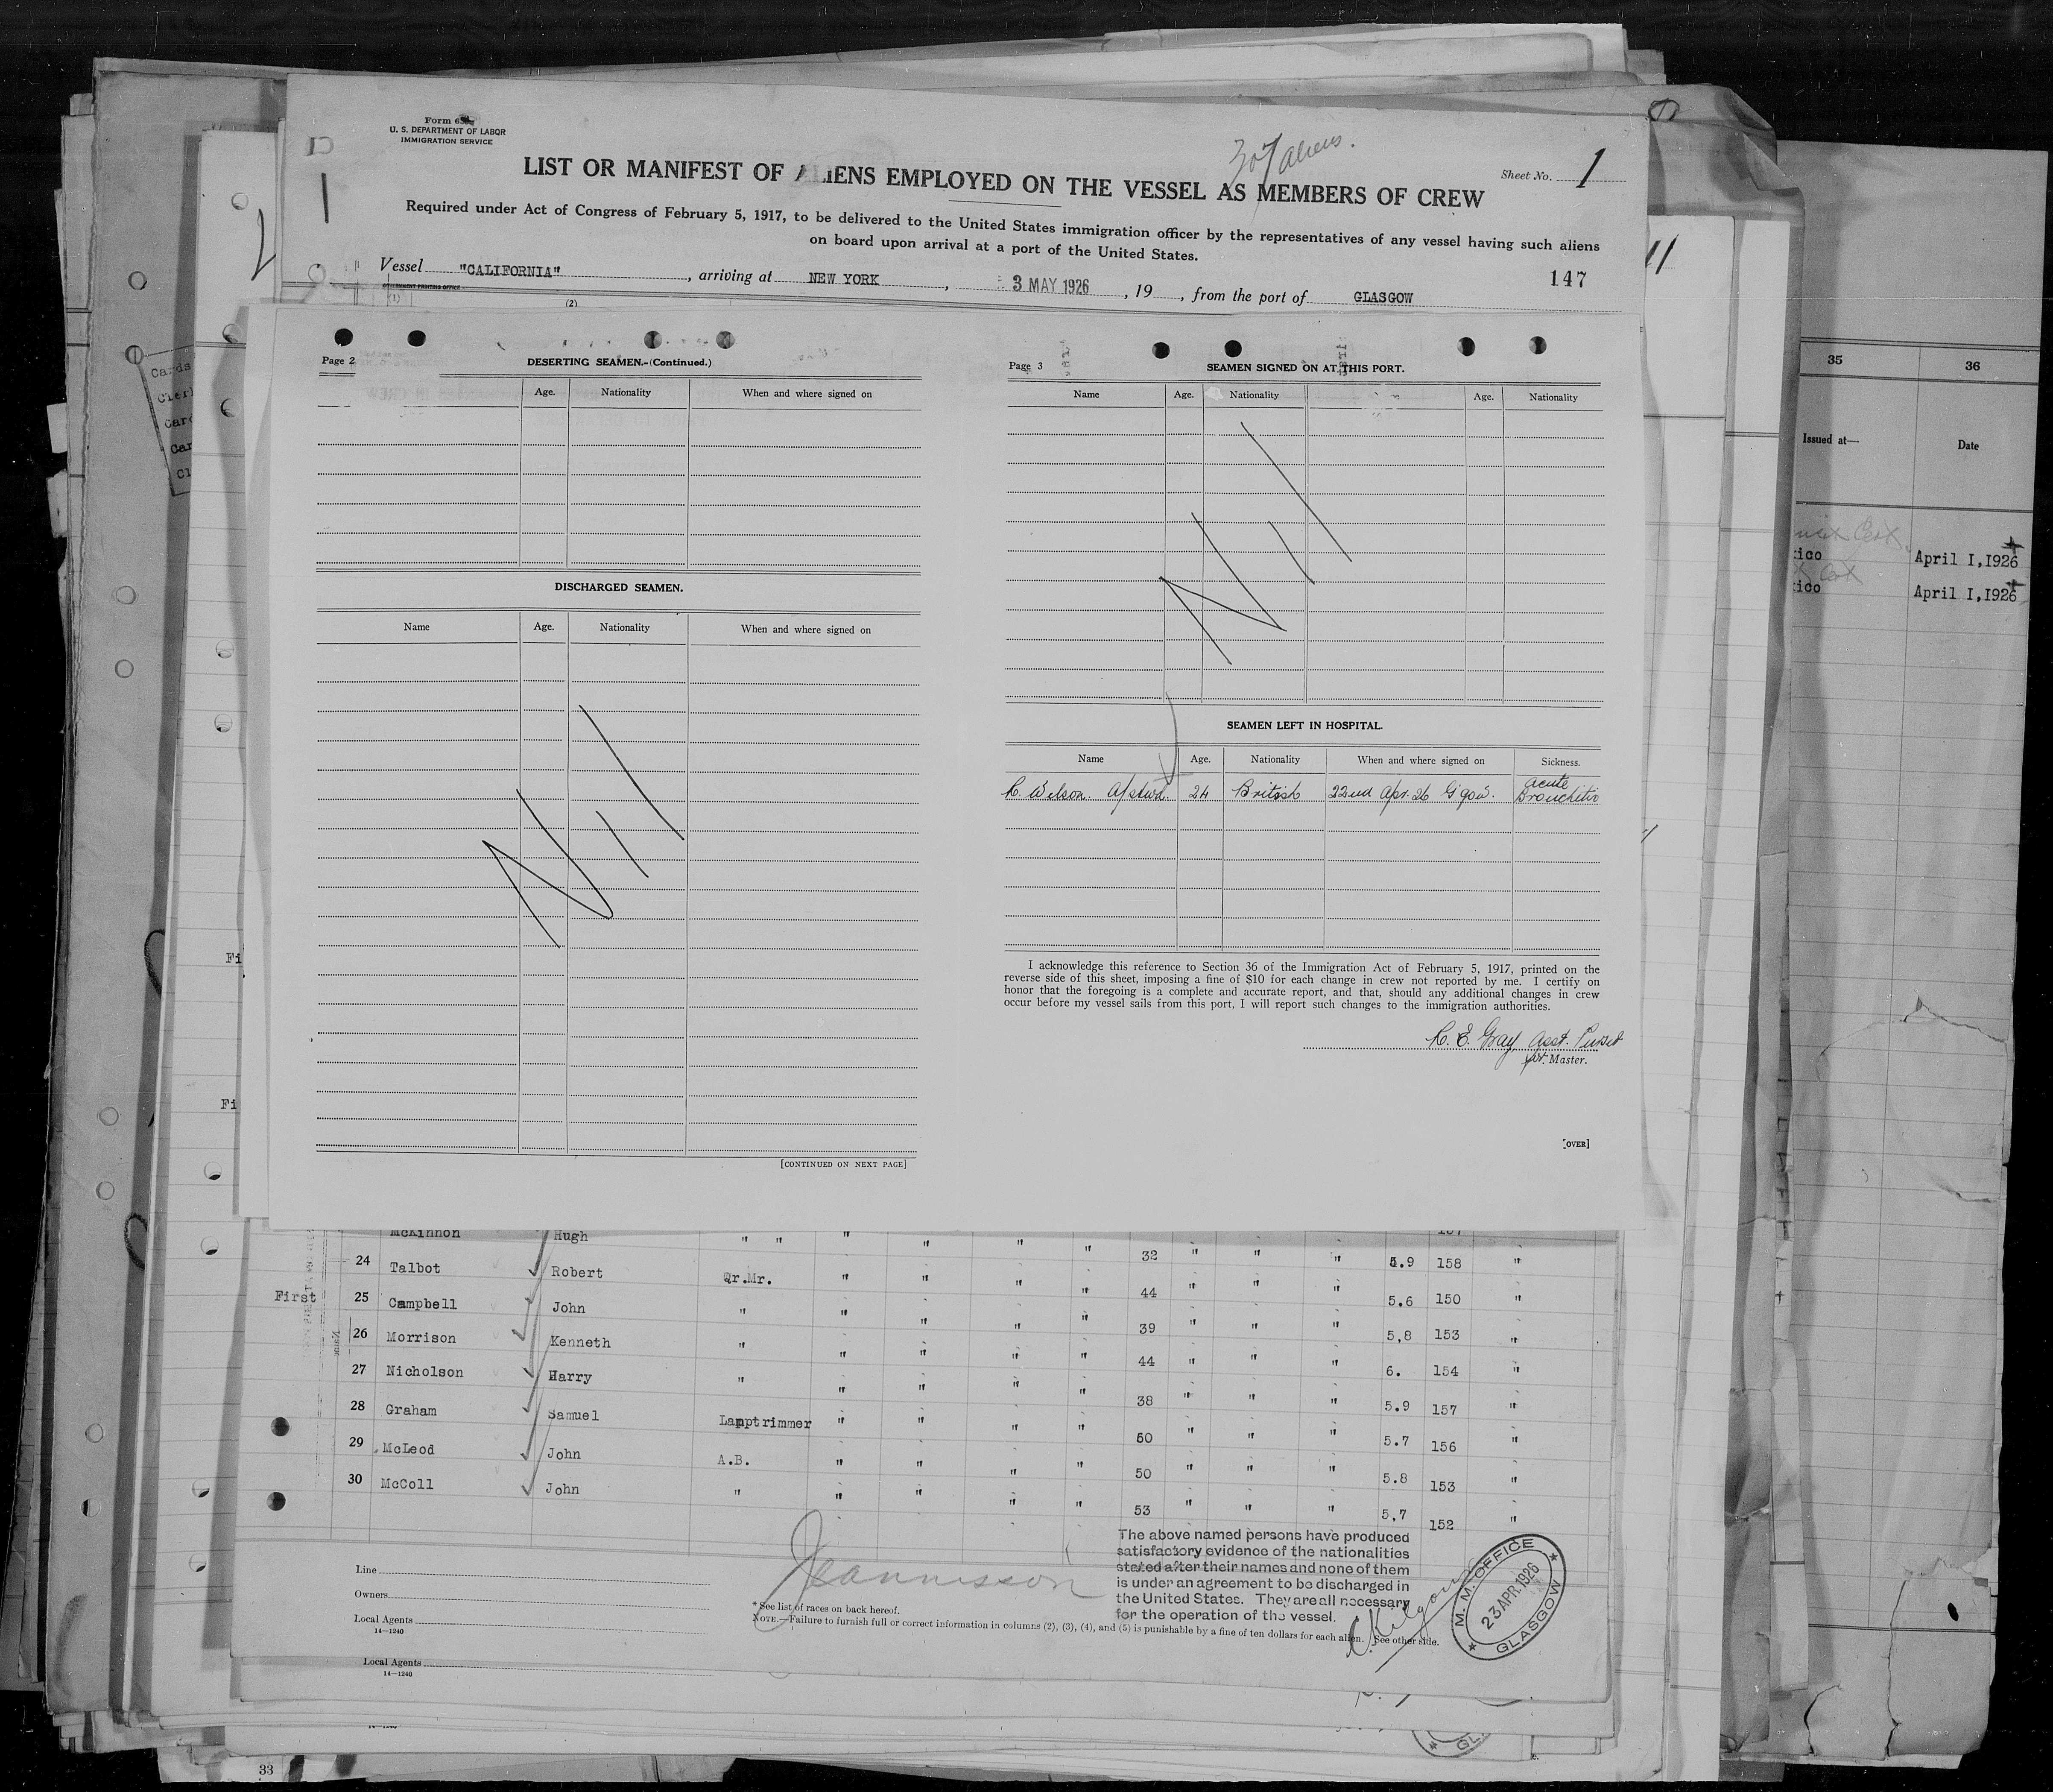 U. S. DEPARTMENT OF LABOR
IMMIGRATION SERVICE
307 aliens.
Sheet No. 1
LIST OR MANIFEST OF ALIENS EMPLOYED ON THE VESSEL AS MEMBERS OF CREW
Required under Act of Congress of February 5, 1917, to be delivered to the United States immigration officer by the representatives of any vessel having such aliens
on board upon arrival at a port of the United States.
147
Vessel "CALIFORNIA", arriving at NEW YORK, 3 MAY 1926, 19, from the port of GLASGOW
GOVERNMENT PRINTING OFFICE
(1) (2)
Page 2
DESERTING SEAMEN.-(Continued.)
Age. Nationality When and where signed on
DISCHARGED SEAMEN.
Name Age. Nationality When and where signed on
Nil
[CONTINUED ON NEXT PAGE]
Page 3
SEAMEN SIGNED ON AT THIS PORT.
Name Age. Nationality Age. Nationality
Nil
SEAMEN LEFT IN HOSPITAL.
Name Age. Nationality When and where signed on Sickness.
C. Wilson. A/stwd. 24 British 22nd Apr. 26 G'gow. Acute
Bronchitis
I acknowledge this reference to Section 36 of the Immigration Act of February 5, 1917, printed on the
reverse side of this sheet, imposing a fine of $10 for each change in crew not reported by me. I certify on
honor that the foregoing is a complete and accurate report, and that, should any additional changes in crew
occur before my vessel sails from this port, I will report such changes to the immigration authorities.
C. E. Gray, Asst. Purser
for Master.
[OVER]
35 36
Issued at— Date
ico April I,1926
ico April I,1926
McKinnon Hugh " " " " " " 32 " " " 5.9 158 "
24 Talbot Robert Qr.Mr. " " " " 44 " " " 5.6 150 "
First 25 Campbell John " " " " " 39 " " " 5.8 153 "
26 Morrison Kenneth " " " " " 44 " " " 6. 154 "
27 Nicholson Harry " " " " " 38 " " " 5.9 157 "
28 Graham Samuel Lamptrimmer " " " " 50 " " " 5.7 156 "
29 McLeod John A.B. " " " " 50 " " " 5.8 153 "
30 McColl John " " " " " 53 " " " 5.7 152 "
The above named persons have produced
satisfactory evidence of the nationalities
stated after their names and none of them
is under an agreement to be discharged in
the United States. They are all necessary
for the operation of the vessel.
Line
Owners
Local Agents
14—1240
* See list of races on back hereof.
NOTE.—Failure to furnish full or correct information in columns (2), (3), (4), and (5) is punishable by a fine of ten dollars for each alien. See other side.
M. M. OFFICE
23 APR. 1926
GLASGOW
Local Agents
14—1240
33